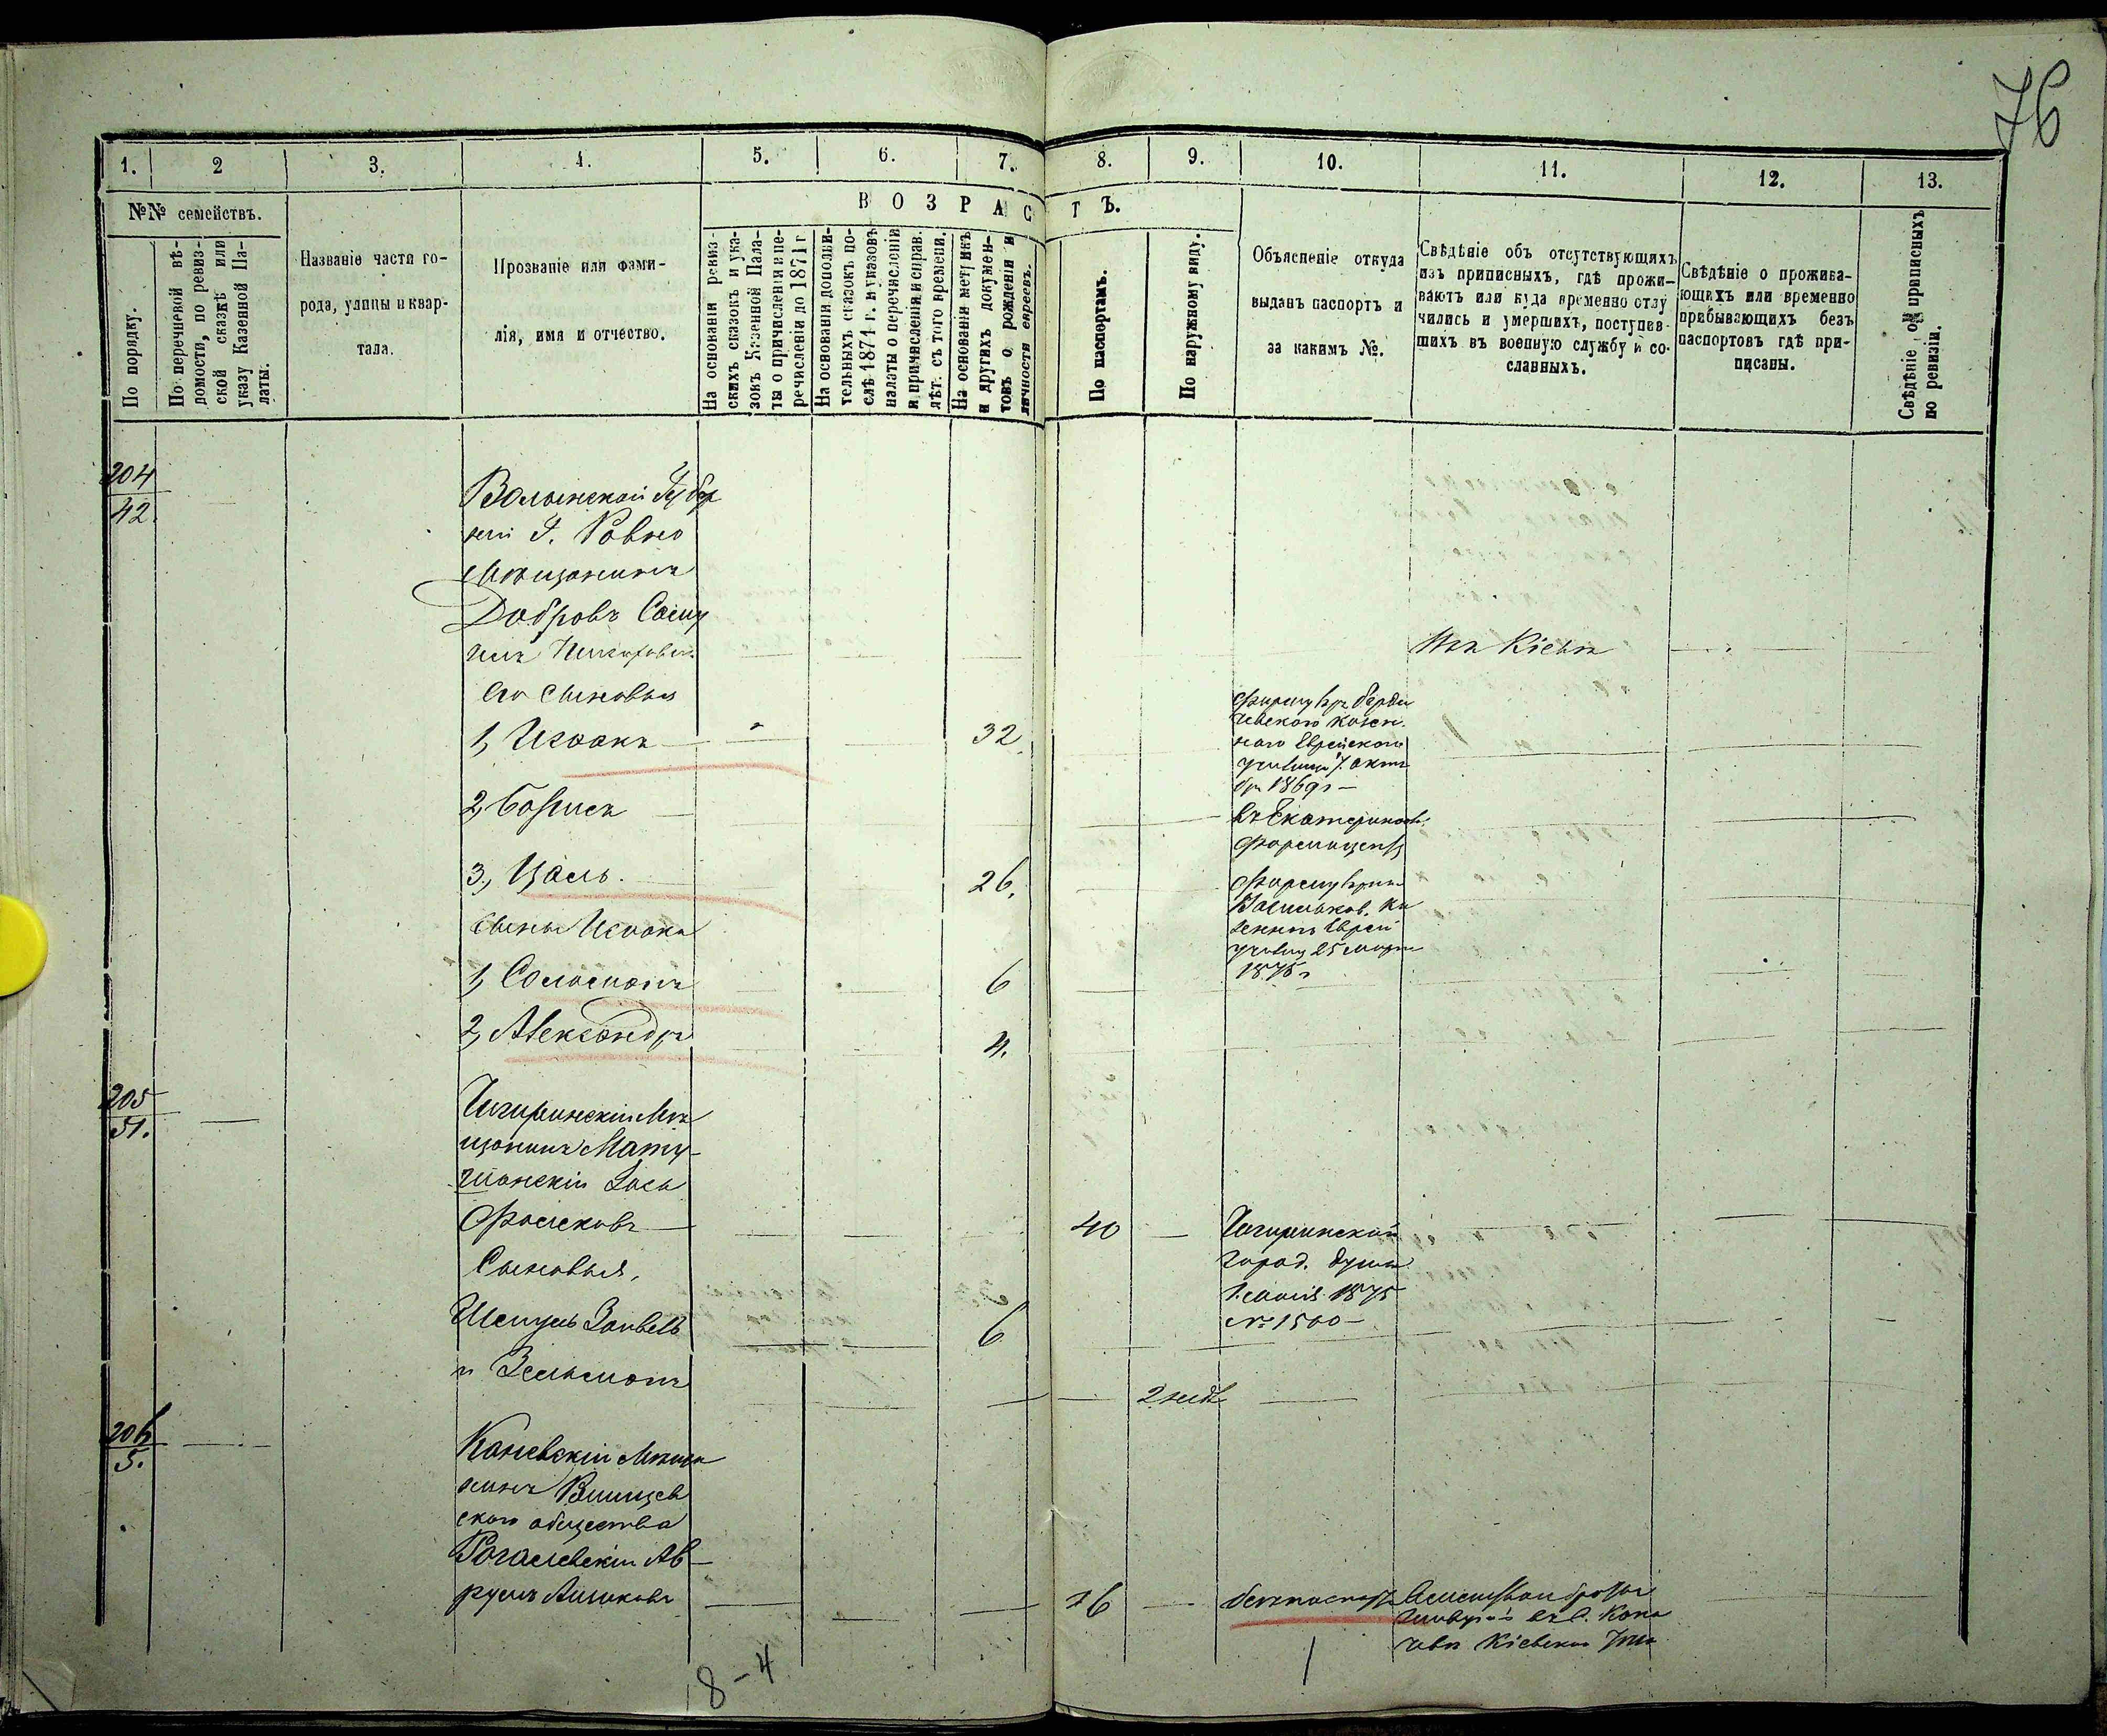 76
1. 2 3. 4. 5. 6. 7. 8. 9. 10. 11. 12. 13.
№№ семействъ.
По порядку.
По перечневой вѣ-
домости, по ревиз-
ской сказкѣ или
указу Казенной Па-
латы.
Названіе части го-
рода, улицы и квар-
тала.
Прозваніе или фами-
лія, имя и отчество.
ВОЗРАСТЪ.
На основаніи ревиз-
скихъ сказокъ и ука-
зовъ Казенной Пала-
ты о причисленіи и пе-
речисленіи до 1871 г.
На основаніи дополни-
тельныхъ сказокъ по-
слѣ 1871 г. и указовъ
палаты о перечисленіи
и причисленіи и справ.
лѣт. съ того времени.
На основаніи метрикъ
и другихъ докумен-
товъ о рожденіи и
личности евреевъ.
По паспортамъ.
По наружному виду.
Объясненіе откуда
выданъ паспортъ и
за какимъ №.
Свѣдѣніе объ отсутствующихъ
изъ приписныхъ, гдѣ прожи-
ваютъ или куда временно отлу
чились и умершихъ, поступив-
шихъ въ военную службу и со-
сланныхъ.
Свѣдѣніе о прожива-
ющихъ или временно
пребывающихъ безъ
паспортовъ гдѣ при-
писаны.
Свѣдѣніе о приписныхъ
по ревизіи.
204
42.
Волынской Губер
ніи Г. Ровно
Мѣщанинъ
Добровъ Саму
илъ
Въ Кіевѣ
Его сыновья
1, Исаакъ 32.
Формуляръ Берди
чевского казен
наго Еврейского
училища 7. Октя
бря 1869 г
2, Борисъ
въ Екатериносл.
3, Цаль. 26.
Формуляръ
Васильков. ка
зеннаго Еврей
училищ 25 марта
1875 г
Сыны Исаака
1, Соломонъ 6
2, Александръ 4.
205
51.
Чигиринскій Мѣ
щанинъ Мату-
шанскій Лось
40 Чигиринской
город. Думы
1875
№ 1500
Сыновья,
Шмуль Занвель 6
и Зельманъ
2 нед.
206
5.
Каневскій Мѣща
нинъ
ского общества
Рогачевскій Ав-
румъ
16
Кіевской
8-4